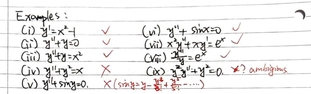 Examples:
(i) y'=x²-1 ✓
(ii) y''+y=0 ✓
(iii) y''+y=x² ✓
(iv) y''+y²=x ✗
(v) y''+siny=0. ✗ (siny=y-y³/3!+y⁵/5!-----)
(vi) y''+sinx=0 ✓
(vii) x²y''+xy'=eˣ ✓
(viii) =eˣ ✓
(ix) y''+y²=0. ✗? ambiguous